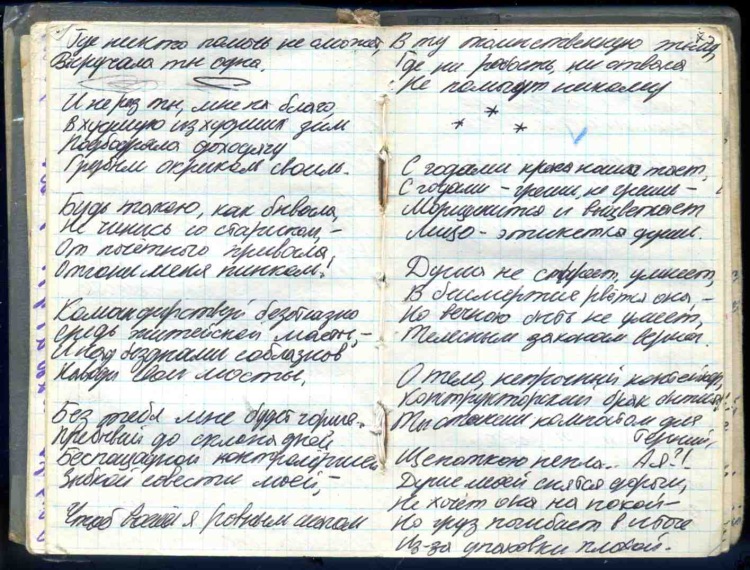 Где никто помочь не сможет,
Выручала ты одна.
И не раз ты, мне на благо,
В худшую из худших зим
Подбодряла доходягу
Грубым окриком своим.
Будь такою, как бывала,
Не чинись со стариком, –
От почётного привала
Отгони меня пинком!
Командирствуй безотказно
средь житейской маеты, –
И над безднами соблазнов
Наводи свои мосты.
Без тебя мне будет горше. –
Пребывай до склона дней
Беспощадной контролёршей
Зыбкой совести моей, –
Чтоб всегда я ровным шагом
В ту таинственную тьму,
Где ни робость, ни отвага
Не помогут никому
* * *
С годами краса наша тает,
С годами – греши, не греши –
Морщится и выцветает
Лицо – этикетка души.
Душа не стареет, умнеет,
В бессмертие рвётся она –
Но вечною быть не умеет,
Телесным законам верна.
О тело, непрочный контейнер,
Конструкторский брак бытия!
Ты станешь компостом для
терний,
Щепоткою пепла... А я?!
Душе моей снятся дороги,
Не хочет она на покой –
Но груз погибает в итоге
Из-за упаковки плохой.